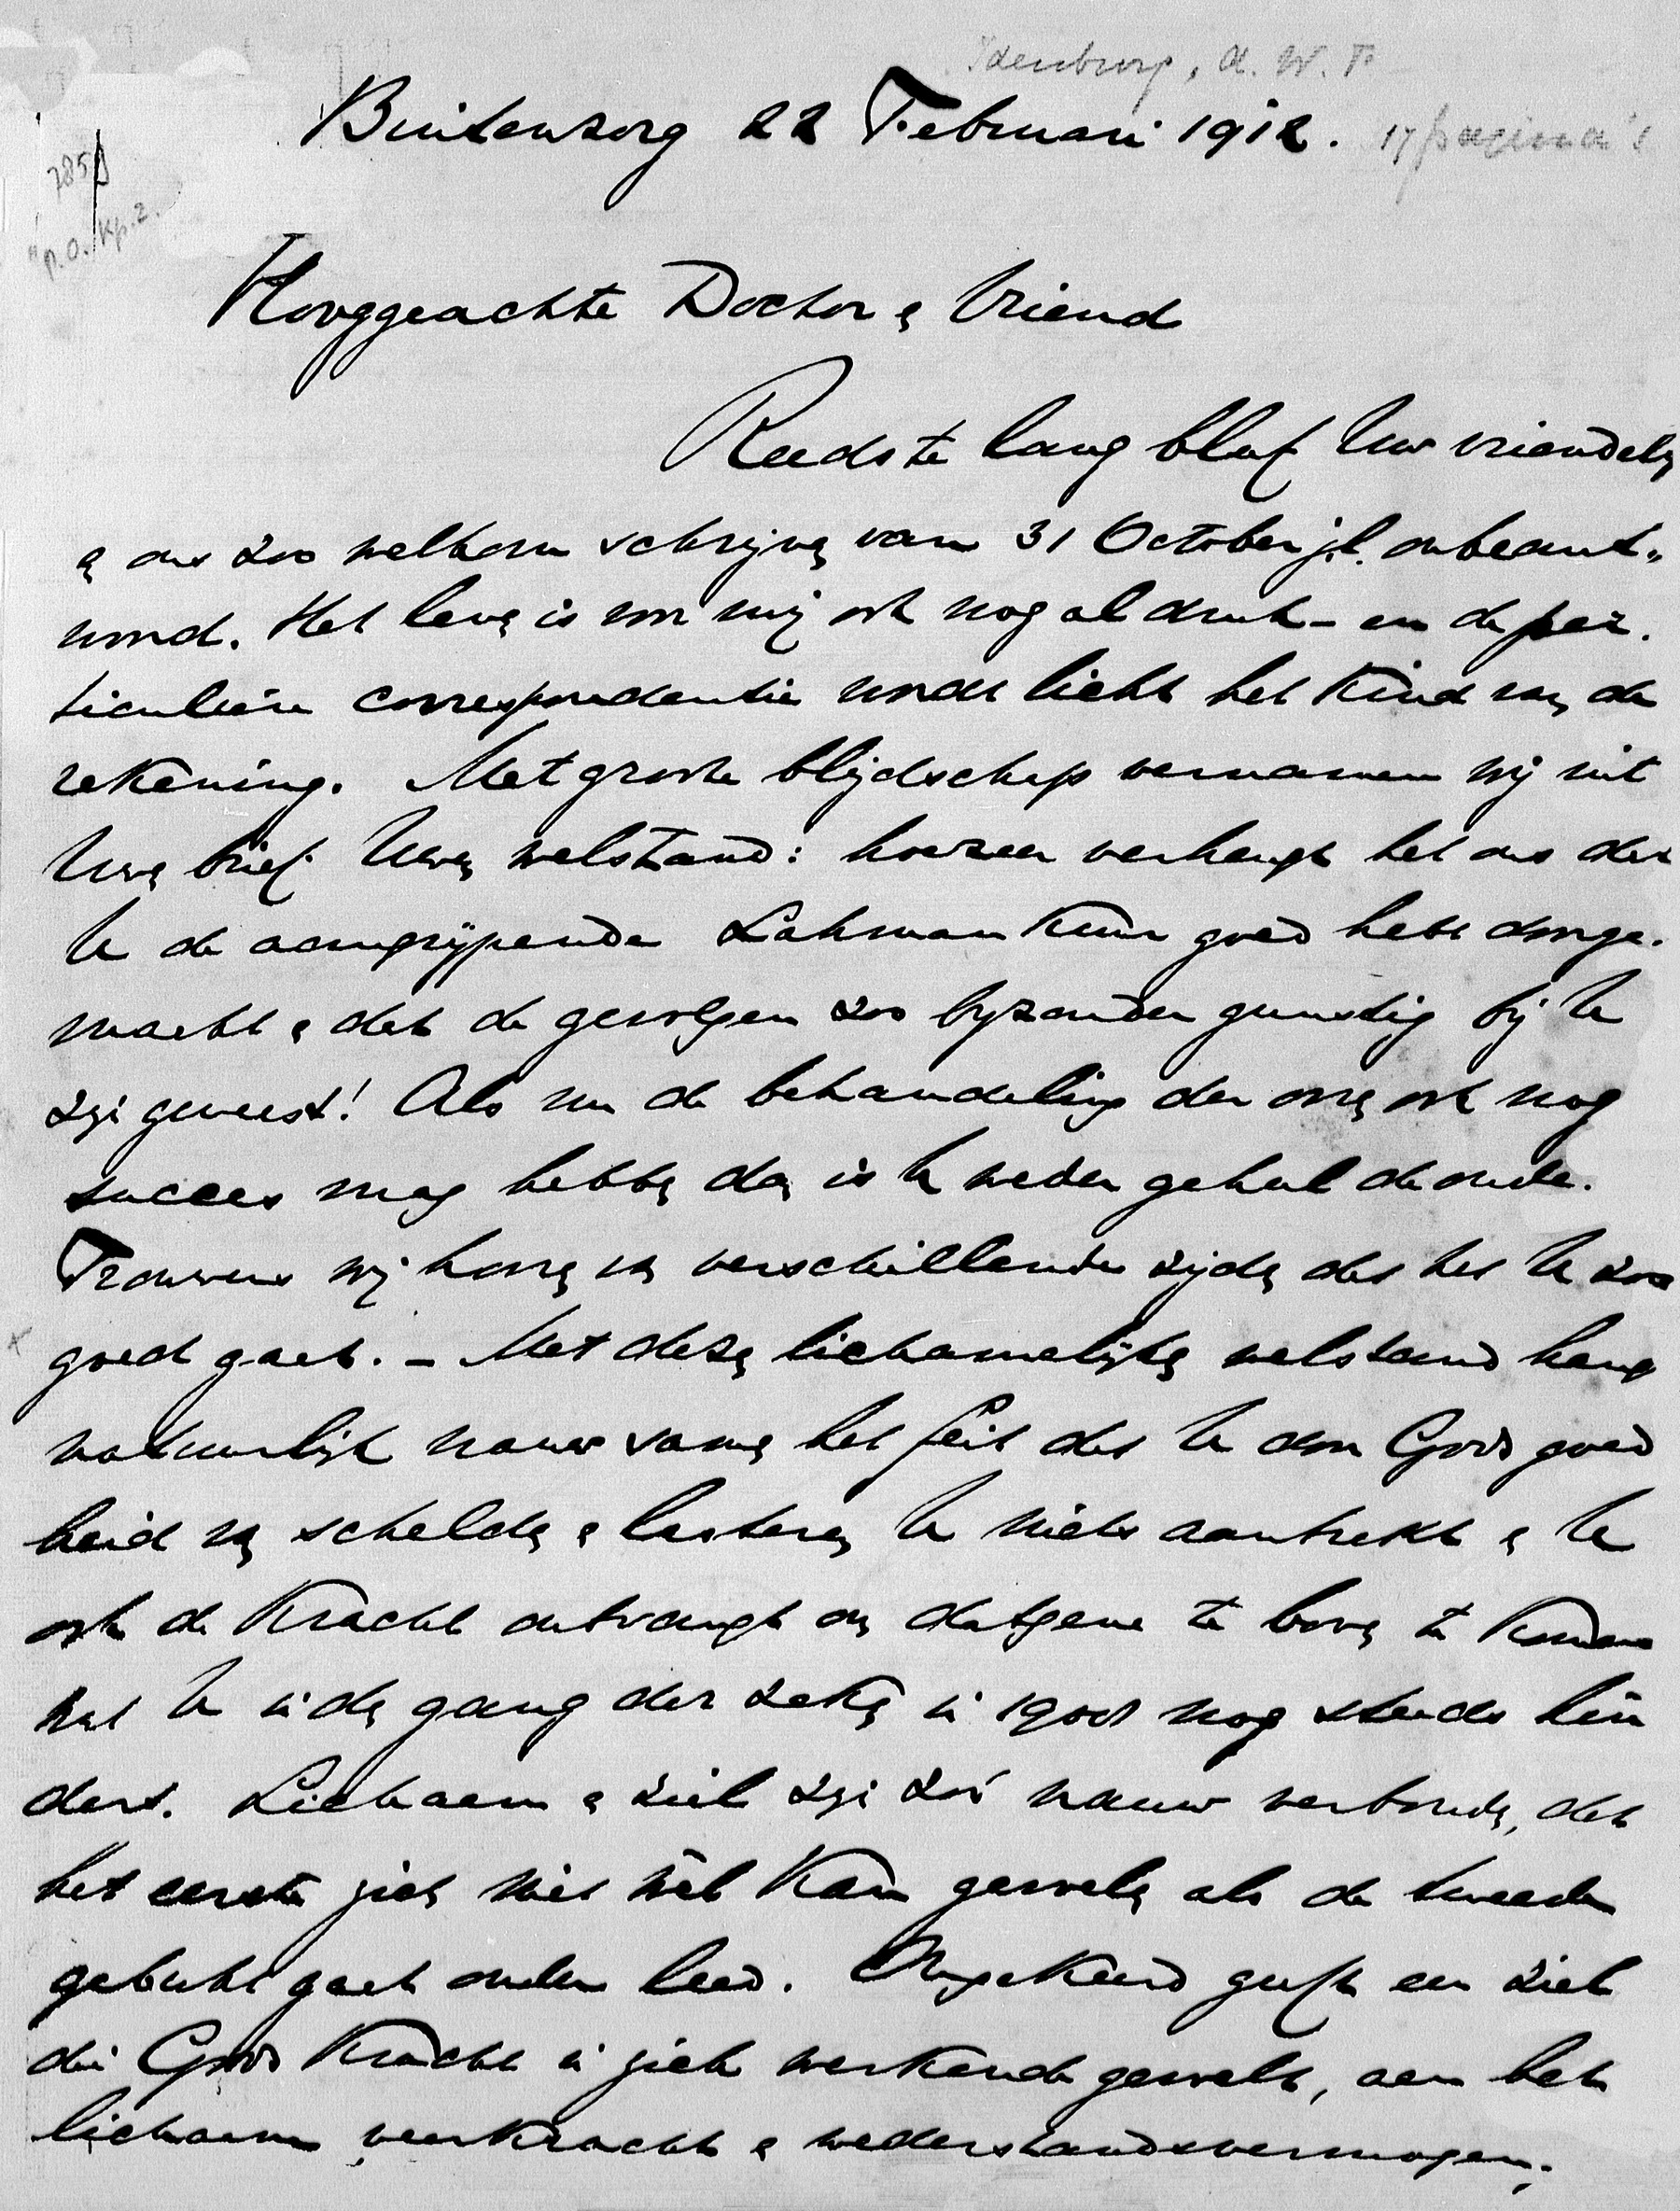 Idenburg, A. W. F.
Buitenzorg 22 Februari 1912. 17 pagina's
7859
p.O. Kp.2.
Hooggeachte Doctor & Vriend
Reeds te lang bleef Uw vriendelijk
& ons zoo welkom schrijven van 31 October j.l. onbeant„
woord. Het leven is voor mij ook nog al druk – en de par.
ticuliere correspondentie wordt licht het kind van de
rekening. Met groote blijdschap vernamen wij uit
Uwen brief Uwen welstand: hoezeer verheugt het ons dat
U de aangrijpende Lahman Kuur goed hebt doorge.
maakt & dat de gevolgen zoo byzonder gunstig bij U
zijn geweest! Als nu de behandeling der ooren ook nog
succes mag hebben dan is U weder geheel de oude.
Trouwens wij hooren van verschillende zijden dat het U zoo
goed gaat. – Met dezen lichamelijken welstand hangt
natuurlijk nauw samen het feit dat U door Gods goed
heid van schelden & lasteren U niets aantrekt & U
ook de kracht ontvangt om datgene te boven te komen
wat U in den gang der zaken in 1908 nog steeds hin
dert. Lichaam & ziel zijn zóó nauw verbonden, dat
het eerste zich niet wèl kan gevoelen als de tweede
gebukt gaat onder leed. Omgekeerd geeft een ziel
die Gods kracht in zich werkende gevoelt, aan het
lichaam veerkracht & wederstandsvermogen.